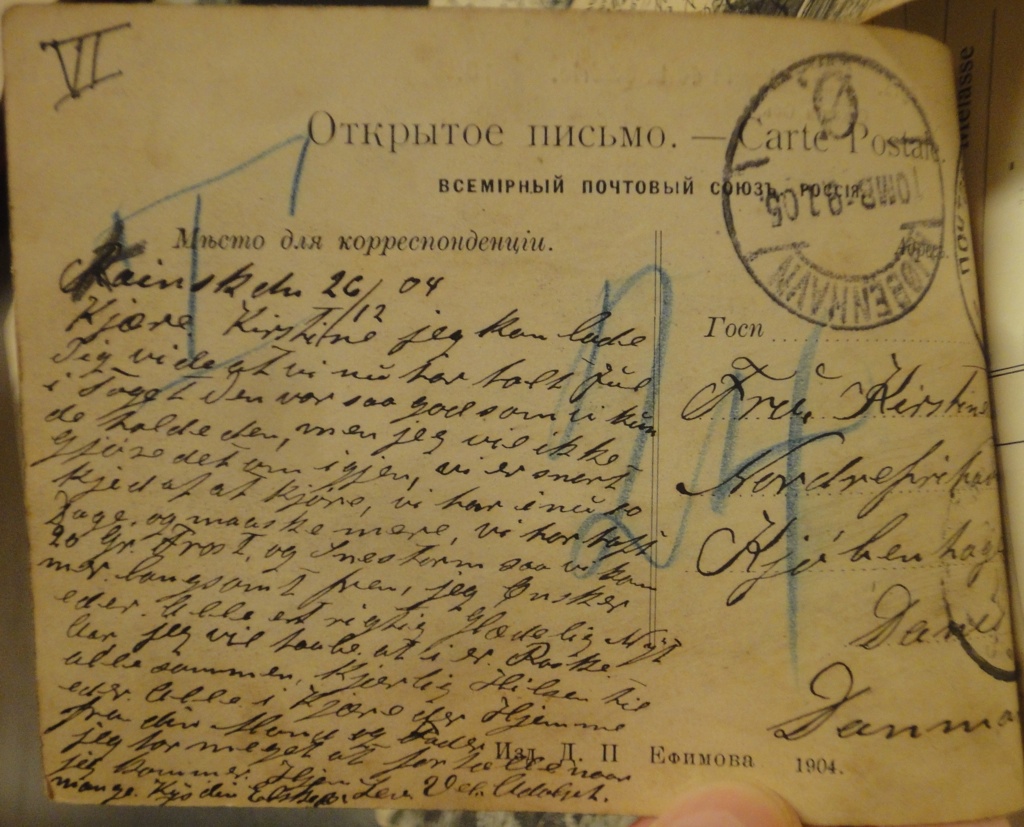 VI
Открытое письмо. — Carte Postale.
ВСЕМІРНЫЙ ПОЧТОВЫЙ СОЮЗЪ. РОССІЯ.
Мѣсто для корреспонденціи.
KJØBENHAVN
10MB-9.1.05
Kainsk den 26/12 04
Kjære Kirstine jeg kan lade
Dig vide at vi nu har holt Jul
i Toget den var saa god som vi kun
de holde den, men jeg vil ikke
gjøre det om igjen, vi er snart
kjed af at kjøre, vi har i nu 10
Dage. og maaske mere, vi har haft
20 Gr. Frost, og Snestorm saa vi kom
mer langsomt frem, jeg Ønsker
eder. Alle et rigtig Glædelig Nyt
Aar jeg vil haabe at i er. Raske.
alle sammen, Kjærlig Hilsen til
eder. Alle i Kjære der Hjemme
fra din Mand og Fader
jeg har meget at fortælle naar
jeg kommer. Hjem Lev Vel.
mange Kys din
Госп
Fru Kirstine
Kjøbenhag
Danm
Изд. Д. П Ефимова 1904.
24